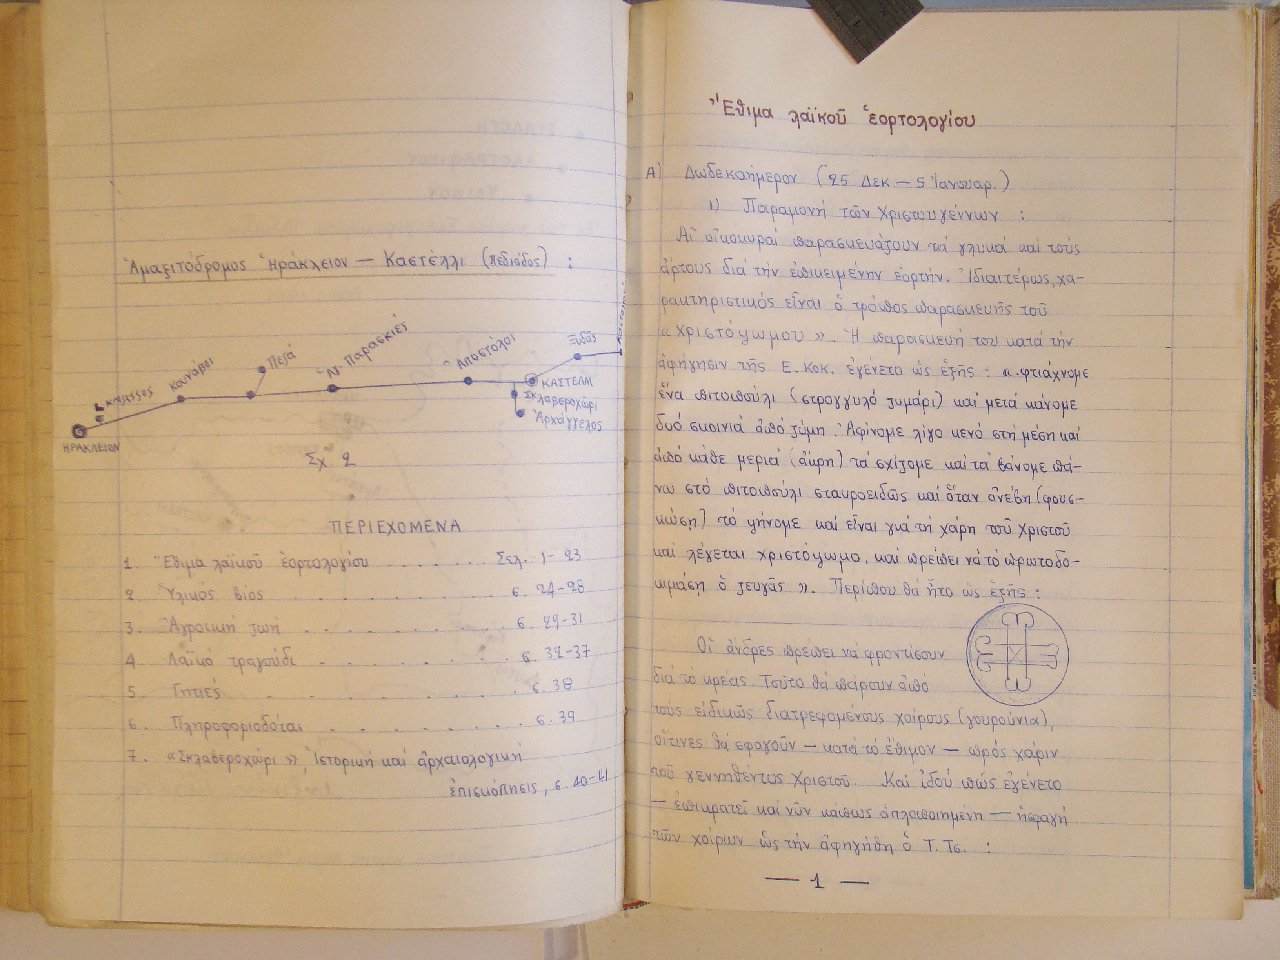 Ἁμαξιτόδρομος Ἡράκλειον — Καστέλλι (Πεδιάδος) :
Κνωσσος
Κουνάβοι
Πεζά
Ἁγ. Παρασκιές
Ἀποστόλοι
Ξυδᾶς
ΗΡΑΚΛΕΙΟΝ
ΚΑΣΤΕΛΛΙ
Σκλαβεροχῶρι
Ἀρχάγγελος
Σχ. 2
ΠΕΡΙΕΧΟΜΕΝΑ
1. Ἔθιμα λαϊκοῦ ἑορτολογίου . . . . . . . Σελ. 1-23
2. Ὑλικός βίος . . . . . . . . . . σ. 24-28
3. Ἀγροτική ζωή . . . . . . . . . σ. 29-31
4. Λαϊκό τραγούδι . . . . . . . . σ. 32-37
5. Γητιές . . . . . . . . . . . σ. 38
6. Πληροφοριοδόται . . . . . . . . σ. 39
7. «Σκλαβεροχώρι», Ἱστορική καί ἀρχαιολογική
ἐπισκόπησις, σ. 40-41
Ἔθιμα λαϊκοῦ ἑορτολογίου
Α) Δωδεκαήμερον (25 Δεκ — 5 Ἰανουαρ.)
1) Παραμονή τῶν Χριστουγέννων :
Αἱ οἰκοκυραί παρασκευάζουν τά γλυκά καί τούς
ἄρτους διά τήν ἐπικειμένην ἑορτήν. Ἰδιαιτέρως, χα-
ρακτηριστικός εἶναι ὁ τρόπος παρασκευῆς τοῦ
«Χριστόψωμου». Ἡ παρασκευή του κατά τήν
ἀφήγησιν τῆς Ε. Κοκ. ἐγένετο ὡς ἑξῆς : «φτιάχνομε
ἕνα πιτοπούλι (στρογγυλό ζυμάρι) καί μετά κάνομε
δυό σκοινιά ἀπό ζύμη. Ἀφίνομε λίγο κενό στή μέση καί
ἀπό κάθε μεριά (ἄκρη) τά σχίζομε καί τά βάνομε πά-
νω στό πιτοπούλι σταυροειδῶς καί ὅταν ἀνέβη (φουσ-
κώση) τό ψήνομε καί εἶναι γιά τή χάρη τοῦ Χριστοῦ
καί λέγεται χριστόψωμο, καί πρέπει νά τό πρωτοδο-
κιμάση ὁ ζευγᾶς». Περίπου θά ἦτο ὡς ἑξῆς :
Οἱ ἄνδρες πρέπει νά φροντίσουν
διά τό κρέας. Τοῦτο θά πάρουν ἀπό
τούς εἰδικῶς διατρεφομένους χοίρους (γουρούνια),
οἵτινες θά σφαγοῦν — κατά τό ἔθιμον — πρός χάριν
τοῦ γεννηθέντος Χριστοῦ. Καί ἰδού πῶς ἐγένετο
— ἐπικρατεῖ καί νῦν κάπως ἁπλοποιημένη — ἡ σφαγή
τῶν χοίρων ὡς τήν ἀφηγήθη ὁ Τ. Τσ. :
— 1 —